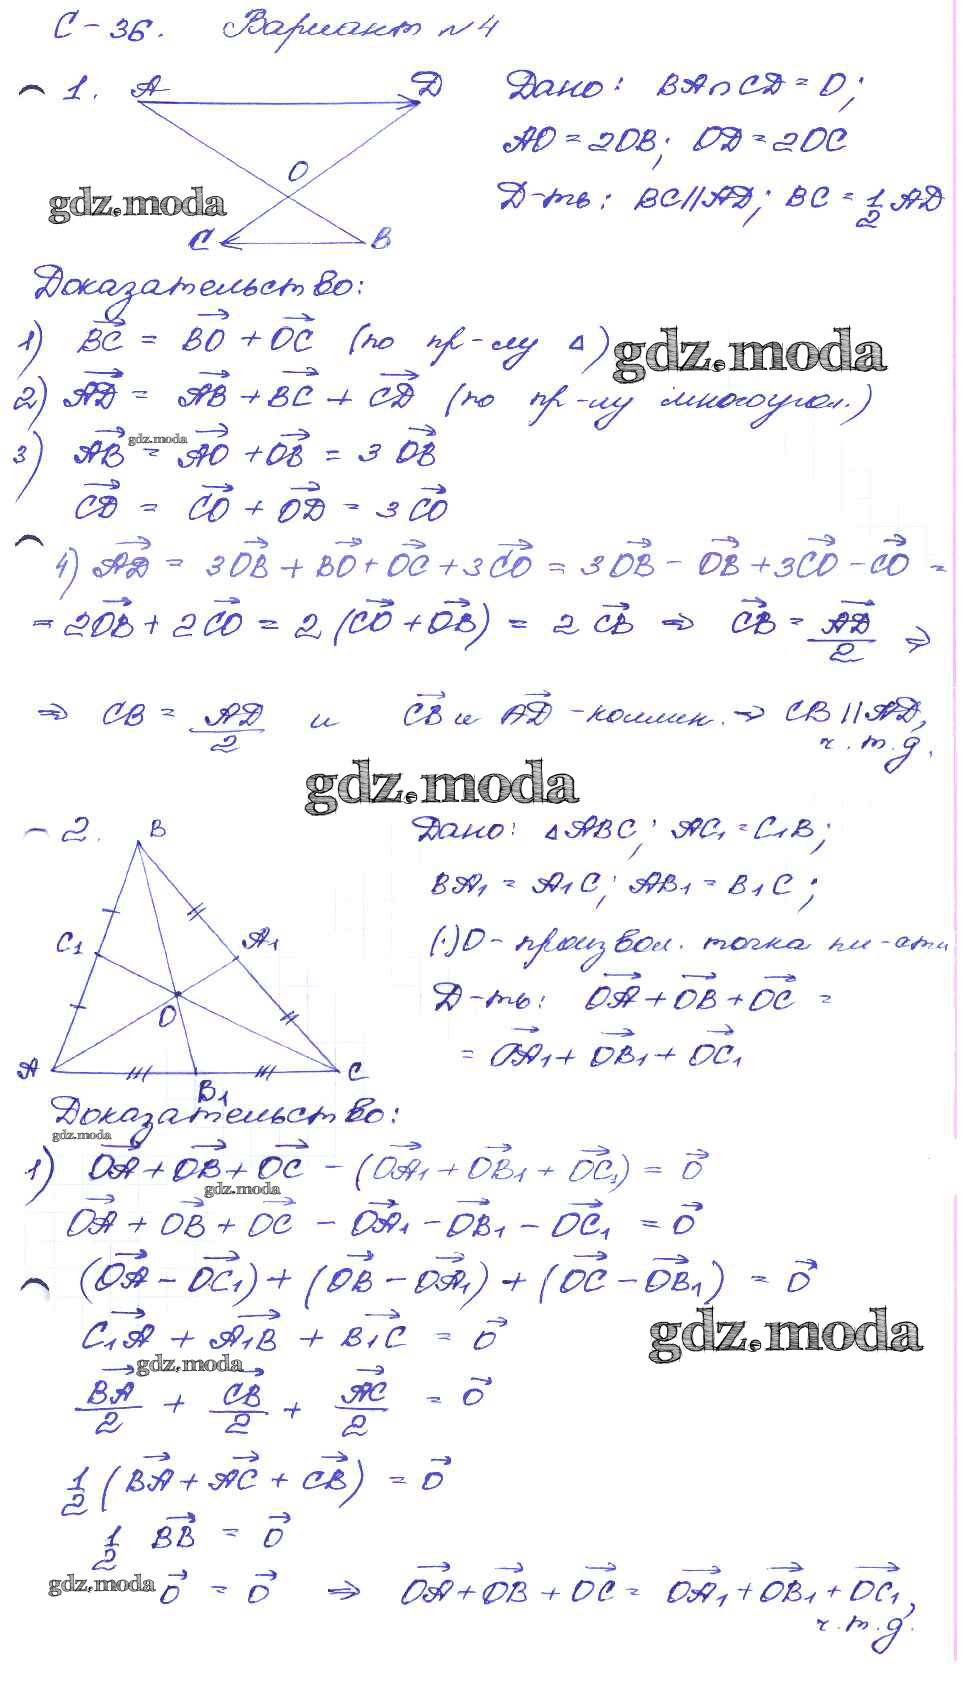 С-36. Вариант №4
1. A D Дано: BA∩CD=O;
AO=2OB; OD=2OC
O
gdz.moda Д-ть: BC//AD; BC=1/2 AD
C B
Доказательство:
1) BC = BO + OC (по пр-лу Δ) gdz.moda
2) AD = AB + BC + CD (по пр-лу многоугол.)
gdz.moda
3) AB = AO + OB = 3 OB
CD = CO + OD = 3CO
4) AD = 3OB + BO + OC + 3CO = 3OB - OB + 3CO - CO =
= 2OB + 2CO = 2(CO + OB) = 2 CB ⇒ CB = AD/2 ⇒
⇒ CB = AD/2 и CB и AD - коллин. ⇒ CB // AD,
ч.т.д.
gdz.moda
2. B Дано: ΔABC; AC1=C1B;
BA1=A1C; AB1=B1C;
C1 A1 (·)O - произвол. точка пл-сти
O Д-ть: OA + OB + OC =
= OA1 + OB1 + OC1
A C
B1
Доказательство:
gdz.moda
1) OA + OB + OC - (OA1 + OB1 + OC1) = 0
gdz.moda
OA + OB + OC - OA1 - OB1 - OC1 = 0
(OA - OC1) + (OB - OA1) + (OC - OB1) = 0
C1A + A1B + B1C = 0 gdz.moda
gdz.moda
BA/2 + CB/2 + AC/2 = 0
1/2 (BA + AC + CB) = 0
1/2 BB = 0
gdz.moda 0 = 0 ⇒ OA + OB + OC = OA1 + OB1 + OC1,
ч.т.д.